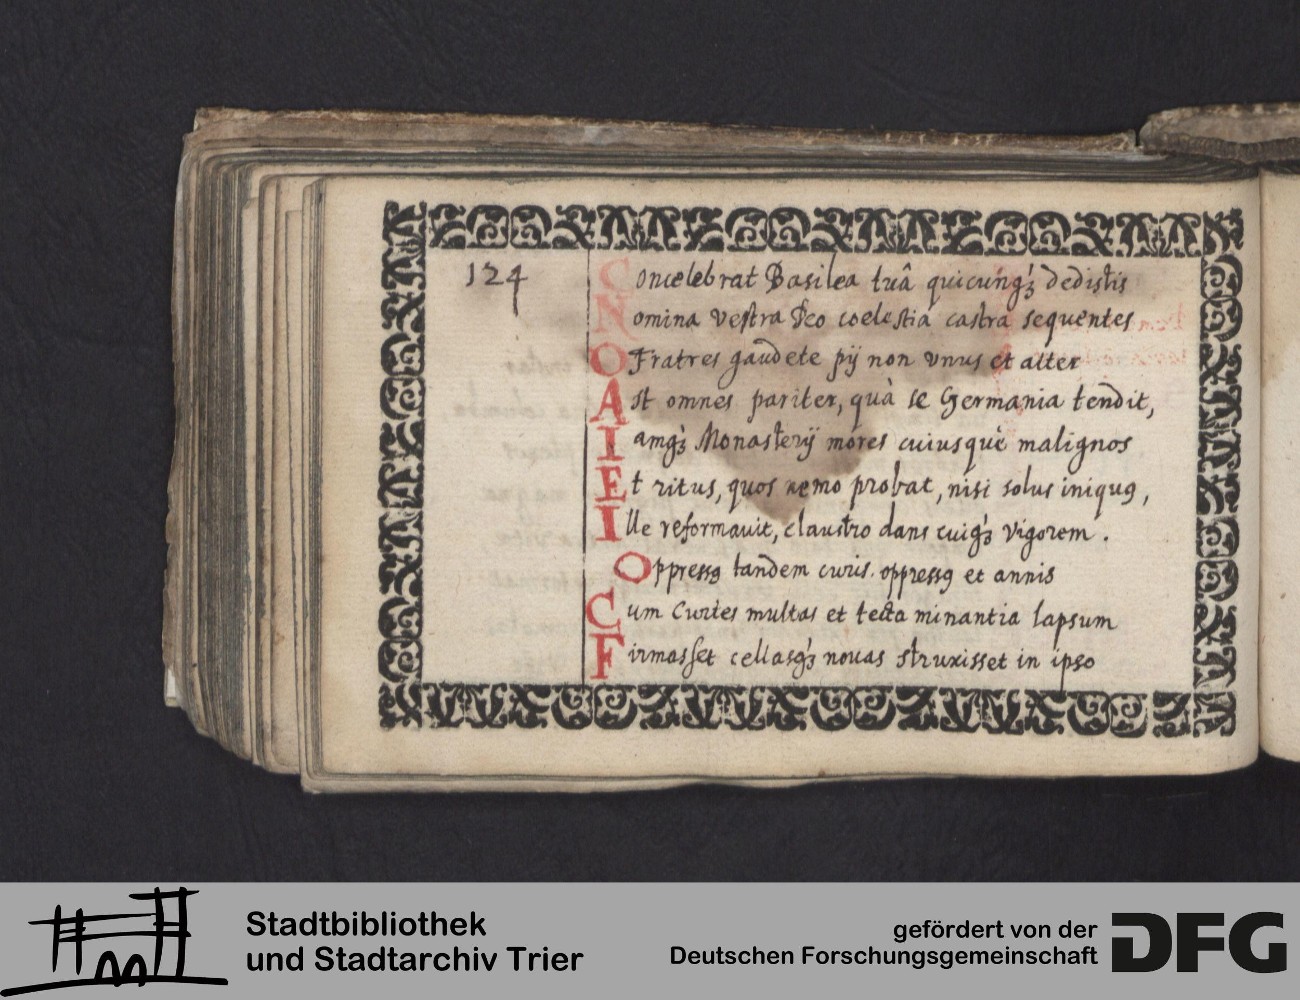 124
Concelebrat Basilea tuâ quicúnqꝫ dedistis
Nomina vestra Deo coelestia castra sequentes
O Fratres gaudete pij non vnus et alter
Ast omnes pariter, quà se Germania tendit,
Iamqꝫ Monasterij mores cuiusquè malignos
Et ritus, quos nemo probat, nisi solus iniquꝰ,
Ille reformauit, claustro dans cuiqꝫ vigorem.
Oppressꝰ tandem curis oppressꝰ et annis
Cum Curtes multas et tecta minantia lapsum
Firmasset cellasqꝫ nouas struxisset in ipso
Stadtbibliothek
und Stadtarchiv Trier
gefördert von der
Deutschen Forschungsgemeinschaft
DFG